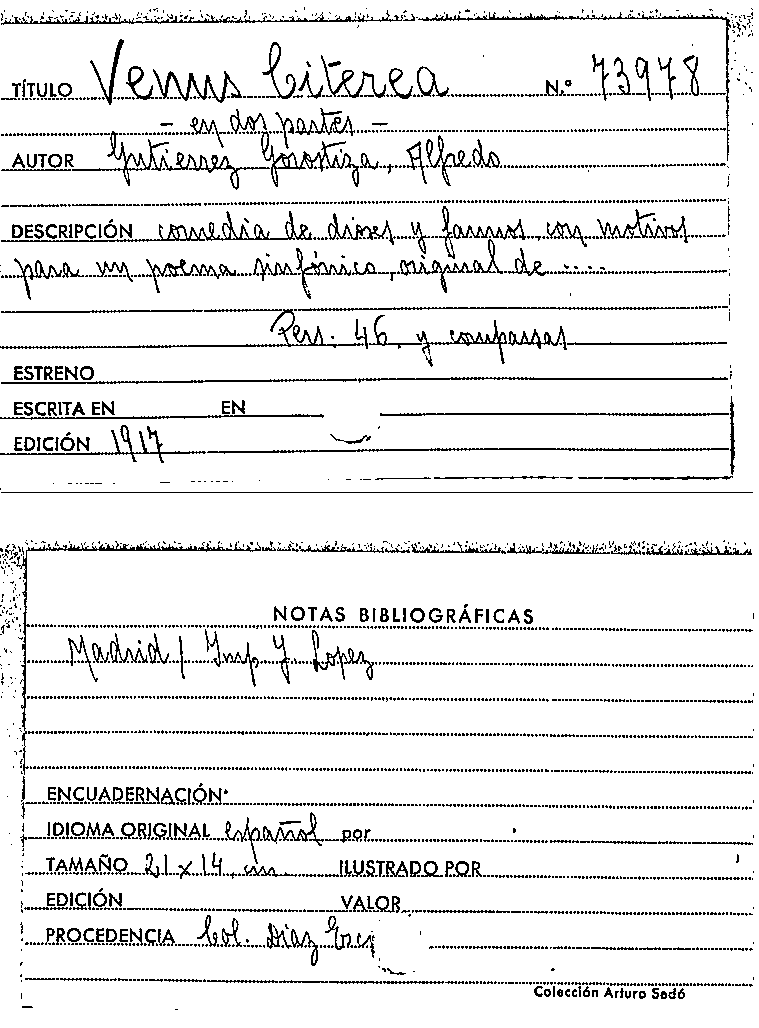 TÍTULO Venus Citerea N.º 73978
- en dos partes -
AUTOR Gutierrez Gorostiza, Alfredo
DESCRIPCIÓN comedia de dioses y faunos, con motivos
para un poema sinfónico, original de ....
Pers. 46 y comparsas
ESTRENO
ESCRITA EN EN
EDICIÓN 1917
NOTAS BIBLIOGRÁFICAS
Madrid / Imp J. Lopez
ENCUADERNACIÓN
IDIOMA ORIGINAL español por
TAMAÑO 21 x 14 cm. ILUSTRADO POR
EDICIÓN VALOR
PROCEDENCIA Col. Díaz
Colección Arturo Sedó